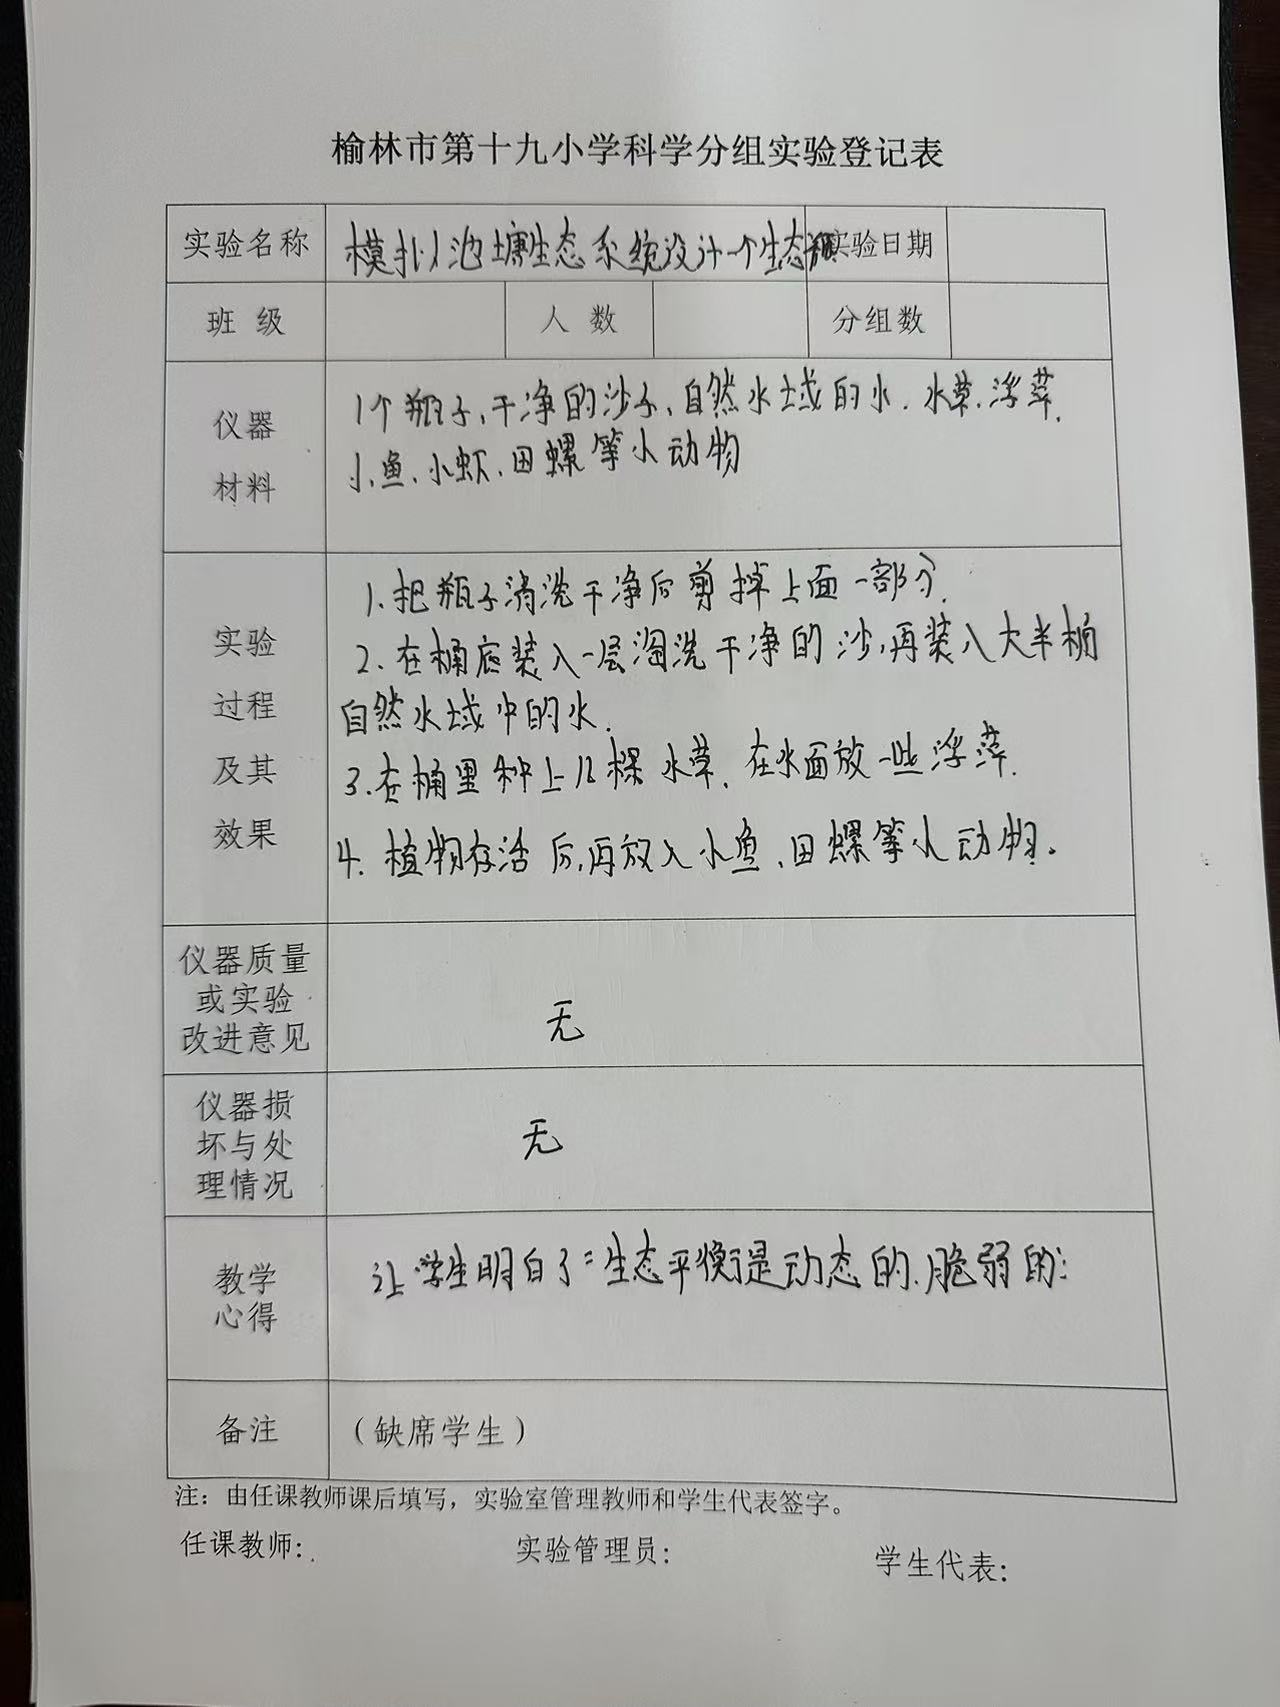 榆林市第十九小学科学分组实验登记表
实验名称 模拟池塘生态系统设计一个生态瓶 实验日期
班级 人数 分组数
仪器
材料
1个瓶子,干净的沙子、自然水域的水.水草.浮萍.
小鱼、小虾、田螺等小动物
实验
过程
及其
效果
1.把瓶子清洗干净后剪掉上面一部分.
2.在桶底装入一层淘洗干净的沙,再装入大半桶
自然水域中的水.
3.在桶里种上几棵水草.在水面放一些浮萍.
4.植物存活后,再放入小鱼、田螺等小动物.
仪器质量
或实验
改进意见
无
仪器损
坏与处
理情况
无
教学
心得
让学生明白了:生态平衡是动态的、脆弱的:
备注 (缺席学生)
注:由任课教师课后填写,实验室管理教师和学生代表签字。
任课教师: 实验管理员: 学生代表: